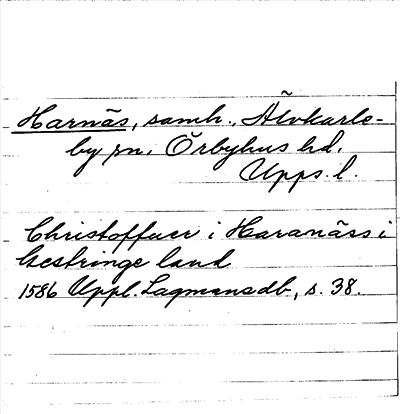 Harnäs, samh., Älvkarle-
by sn, Örbyhus hd.
Upps. l.
Christoffuer i Haranäss i
Gestringe land
1586 Uppl. Lagmansdb, s. 38.